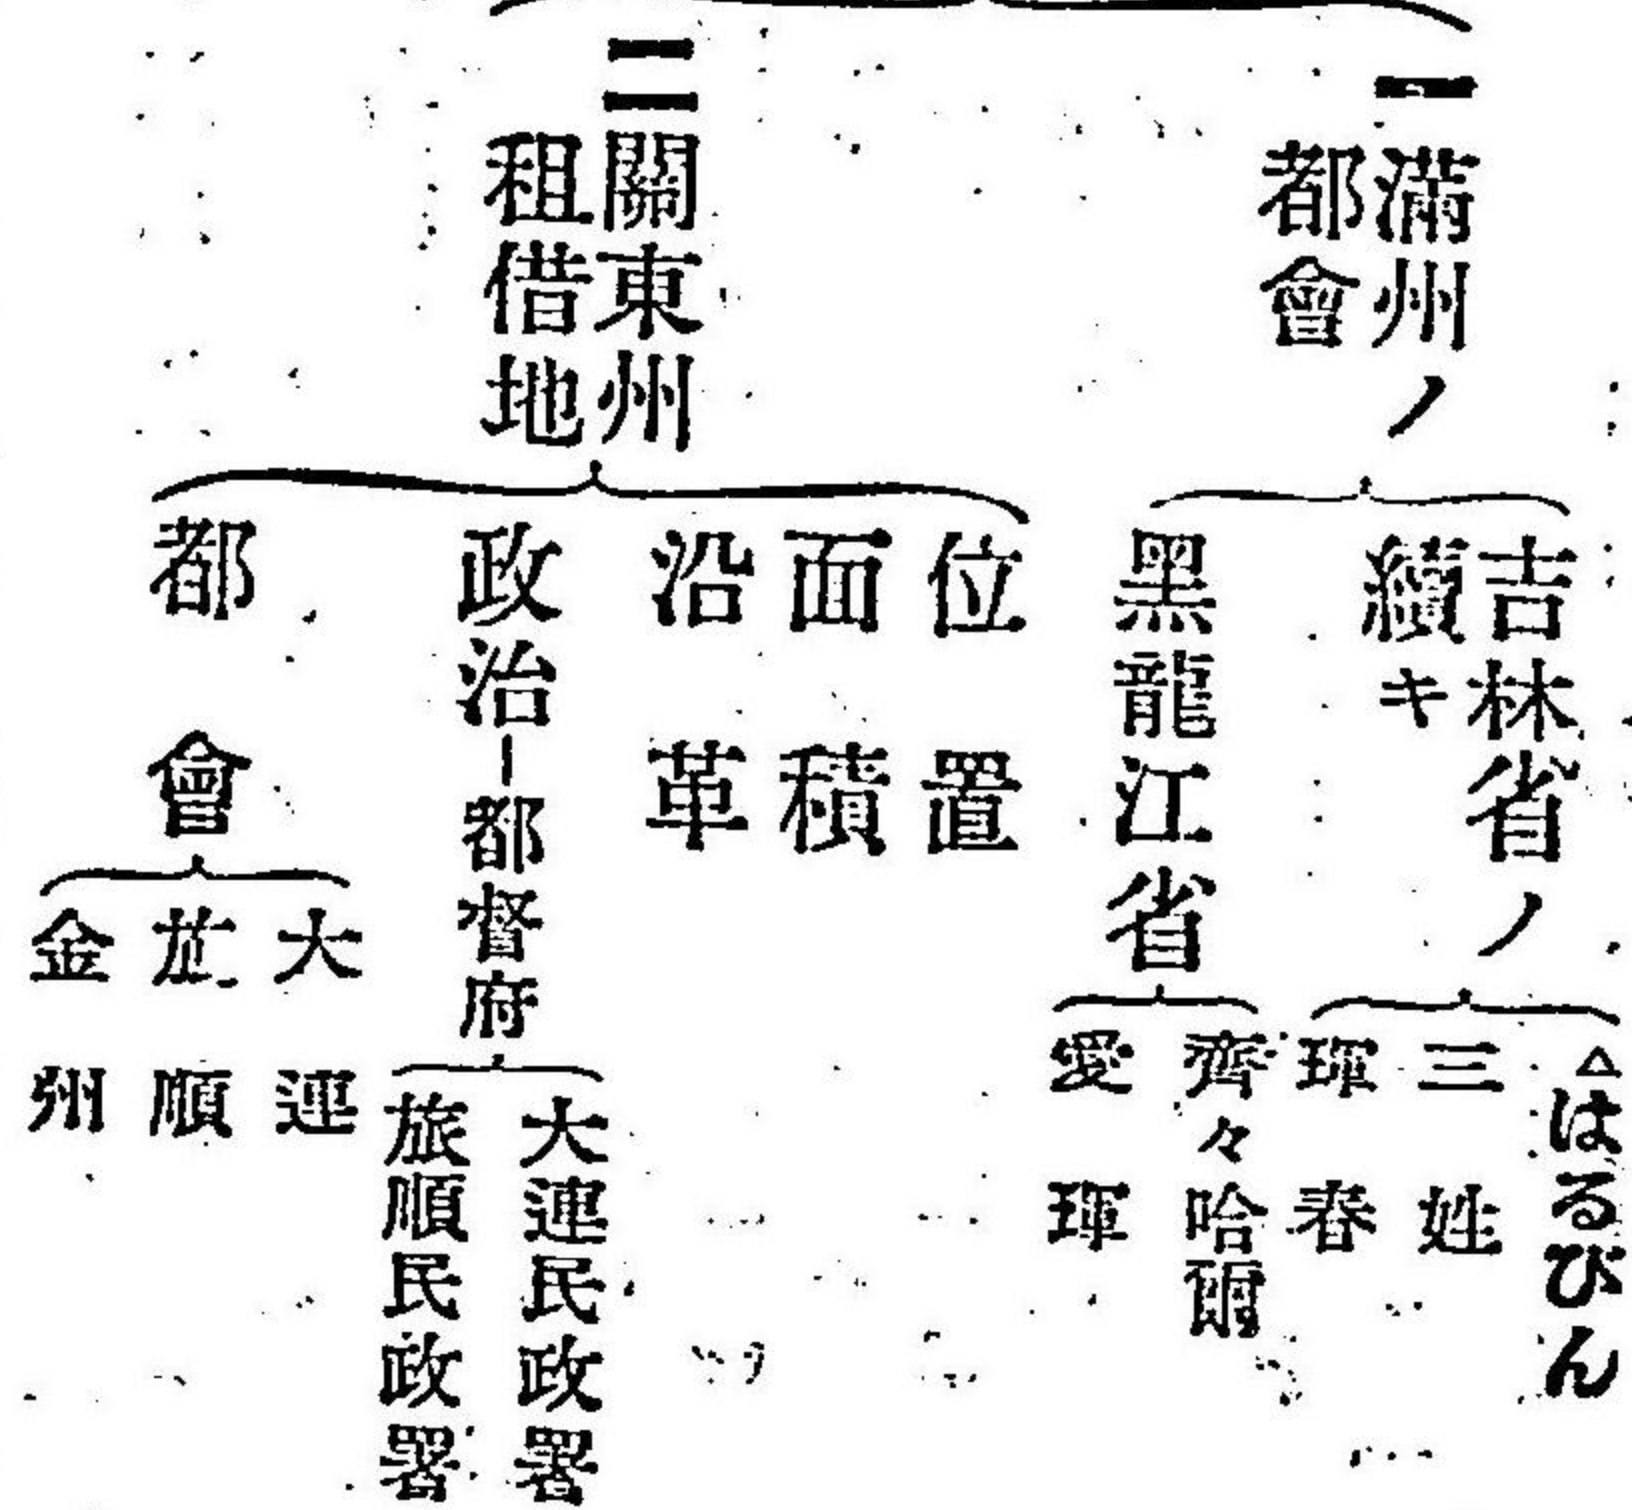 一
滿州ノ
都會
吉林省ノ
續キ
△はるびん
三姓
琿春
黑龍江省
齊々哈爾
愛琿
二
關東州
租借地
位置
面積
沿革
政治―都督府
大連民政署
旅順民政署
都會
大連
旅順
金州